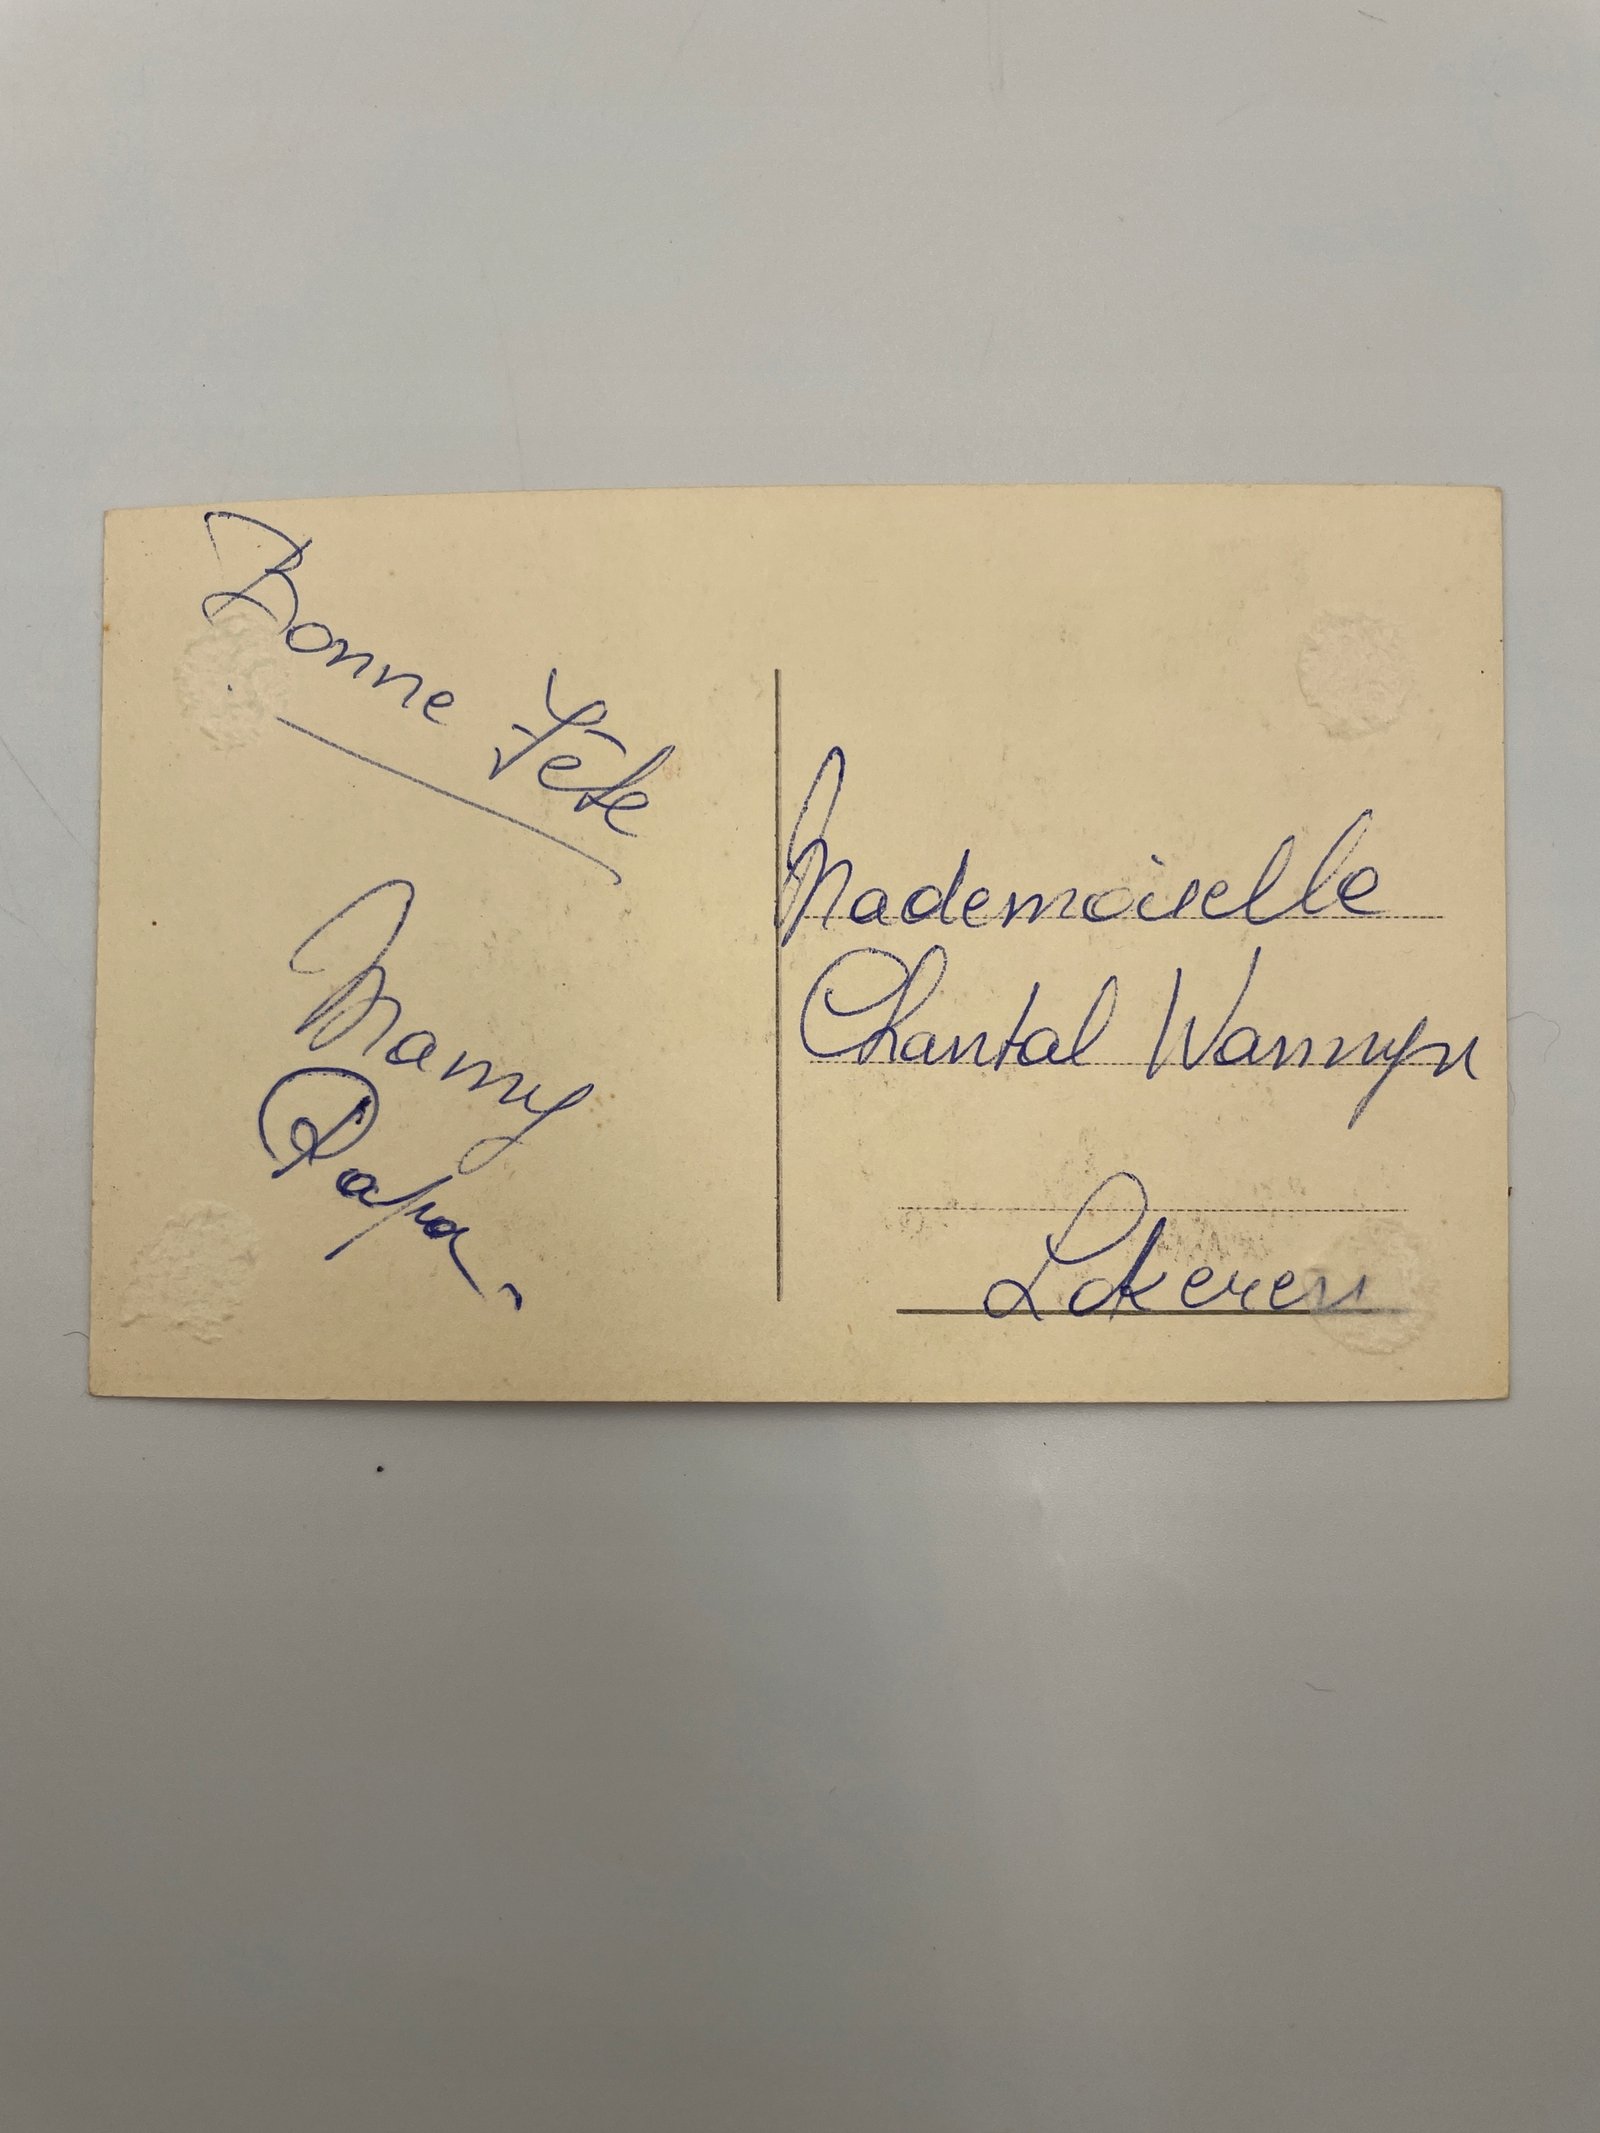 Bonne Fête
Mamy
Papa.
Mademoiselle
Chantal Wannyn
Lokeren